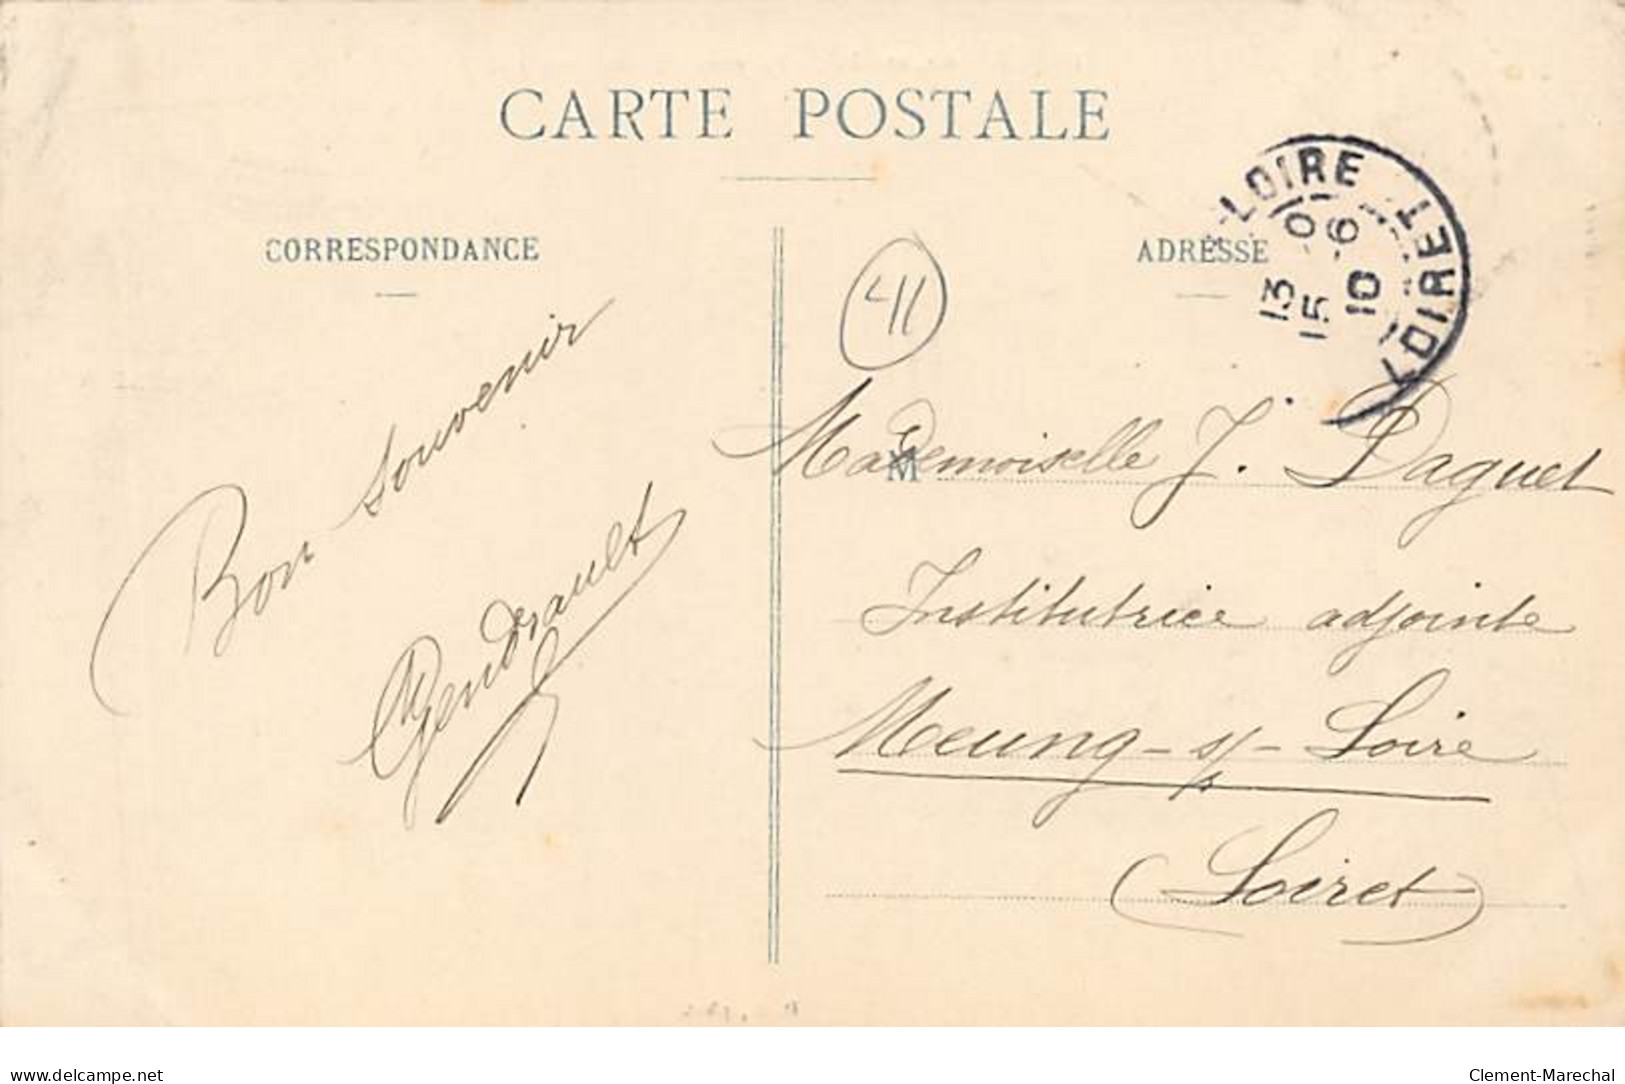 CARTE POSTALE
CORRESPONDANCE
ADRESSE
LOIRE
LOIRET
13 -0
15 -6
10
41
Bon souvenir
Gendrault
M
Mademoiselle J. Daguet
Institutrice adjointe
Meung-s/-Loire
(Loiret)
www.delcampe.net
Clement-Marechal